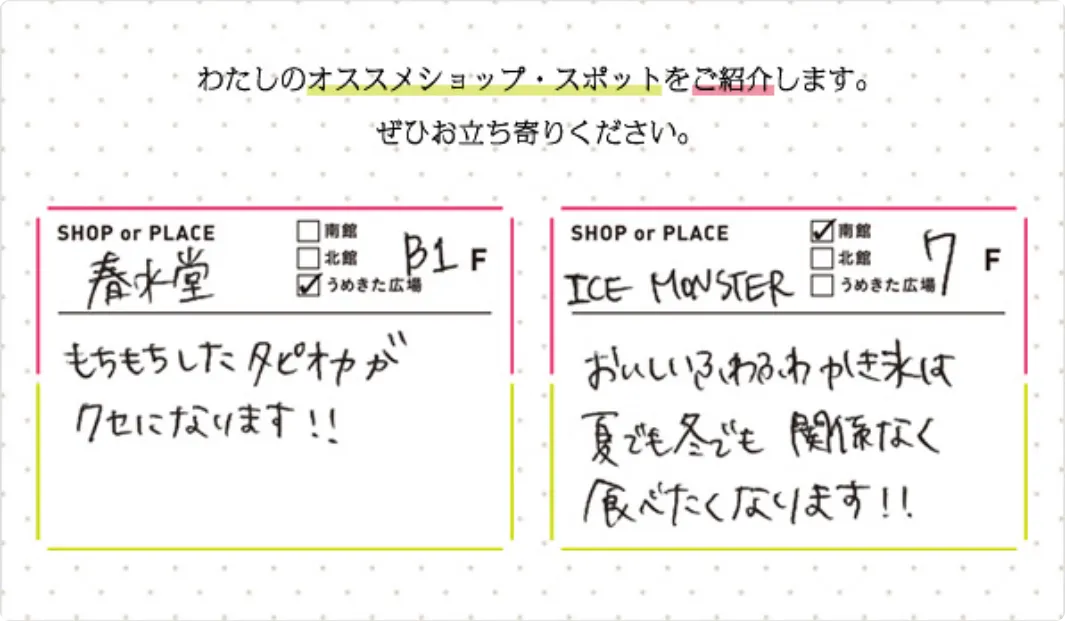 わたしのオススメショップ・スポットをご紹介します。
ぜひお立ち寄りください。
SHOP or PLACE
春水堂
南館
北館
✓うめきた広場
B1 F
もちもちしたタピオカが
クセになります!!
SHOP or PLACE
ICE MONSTER
✓南館
北館
うめきた広場
7 F
おいしいふわふわかき氷は
夏でも冬でも関係なく
食べたくなります!!